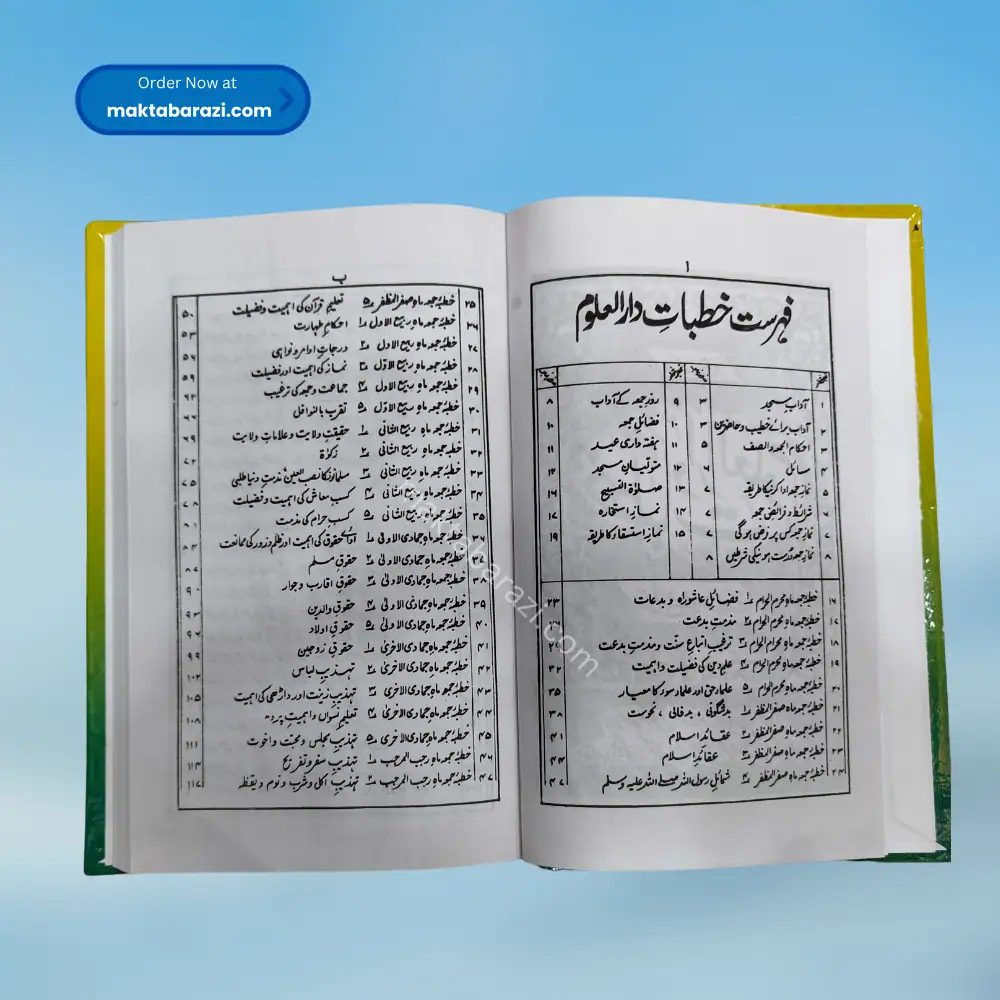 Order Now at
maktabarazi.com
۱
فہرست خطباتِ دارالعلوم
۱ آدابِ مسجد ۳ ۹ روزِ جمعہ کے آداب ۸
۲ آداب برائے خطیب و حاضرین ۳ ۱۰ فضائلِ جمعہ ۱۰
۳ ۵ ۱۱ ہفتہ داری عید ۱۱
۴ مسائل ۶ ۱۲ متولیانِ مسجد ۱۲
۵ نمازِ جمعہ ادا کرنیکا طریقہ ۷ ۱۳ صلاۃ التسبیح ۱۶
۶ شرائط و فرائضِ جمعہ ۷ ۱۴ نمازِ استخارہ ۱۷
۷ نمازِ جمعہ کس پر فرض ہوگی ۷ ۱۵ نمازِ استسقار کا طریقہ ۱۹
۸ نمازِ جمعہ درست ہونیکی شرطیں ۸
۱۶ خطبۂ جمعہ ماہِ محرم الحرام ۱؎ فضائلِ عاشوراہ و بدعات ۲۳
۱۷ خطبۂ جمعہ ماہِ محرم الحرام ۲؎ مذمتِ بدعت
۱۸ خطبۂ جمعہ ماہِ محرم الحرام ۳؎ ترغیب اتباعِ سنّت و مذمتِ بدعت ۲۹
۱۹ خطبۂ جمعہ ماہِ محرم الحرام ۴؎ علمِ دین کی فضیلت و اہمیت ۳۲
۲۰ خطبۂ جمعہ ماہِ محرم الحرام ۵؎ علمارِ حق اور علمارِ سور کا معیار ۳۵
۲۱ خطبۂ جمعہ ماہِ صفر المظفر ۱؎ بدشگونی ، بدفالی ، نحوست ۳۸
۲۲ خطبۂ جمعہ ماہِ صفر المظفر ۲؎ عقائدِ اسلام ۴۱
۲۳ خطبۂ جمعہ ماہِ صفر المظفر ۳؎ عقائدِ اسلام ۴۴
۲۴ خطبۂ جمعہ ماہِ صفر المظفر ۴؎ شمائلِ رسول اللہ صلے اللہ علیہ وسلم ۴۷
ب
۲۵ خطبۂ جمعہ ماہِ صفر المظفر ۵؎ تعلیمِ قرآن کی اہمیت و فضیلت ۵۰
۲۶ خطبۂ جمعہ ماہِ ربیع الاول ۱؎ احکامِ طہارت ۵۳
۲۷ خطبۂ جمعہ ماہِ ربیع الاول ۲؎ درجاتِ اوامر و نواہی ۵۶
۲۸ خطبۂ جمعہ ماہِ ربیع الاوّل ۳؎ نماز کی اہمیت اور فضیلت ۵۹
۲۹ خطبۂ جمعہ ماہِ ربیع الاوّل ۴؎ جماعت و جمعہ کی ترغیب ۶۳
۳۰ خطبۂ جمعہ ماہِ ربیع الاول ۵؎ تقرب بالنوافل ۶۶
۳۱ خطبۂ جمعہ ماہِ ربیع الثانی ۱؎ حقیقتِ ولایت و علاماتِ ولایت ۶۹
۳۲ خطبۂ جمعہ ماہِ ربیع الثانی ۲؎ زکوٰۃ ۷۲
۳۳ خطبۂ جمعہ ماہِ ربیع الثانی ۳؎ مسلمانونکا نصب العین، مذمتِ دنیا طلبی ۷۵
۳۴ خطبۂ جمعہ ماہِ ربیع الثانی ۴؎ کسبِ معاش کی اہمیت و فضیلت ۷۸
۳۵ خطبۂ جمعہ ماہِ ربیع الثانی ۵؎ کسبِ حرام کی مذمت ۸۱
۳۶ خطبۂ جمعہ ماہِ جمادی الاولیٰ ۱؎ ادائے حقوق کی اہمیت اور ظلم و زور کی ممانعت ۸۴
۳۷ خطبۂ جمعہ ماہِ جمادی الاولیٰ ۲؎ حقوقِ مسلم ۸۷
۳۸ خطبۂ جمعہ ماہِ جمادی الاولیٰ ۳؎ حقوقِ اقارب و جوار ۹۰
۳۹ خطبۂ جمعہ ماہِ جمادی الاولیٰ ۴؎ حقوقِ والدین ۹۳
۴۰ خطبۂ جمعہ ماہِ جمادی الاولیٰ ۵؎ حقوقِ اولاد ۹۶
۴۱ خطبۂ جمعہ ماہِ جمادی الاخریٰ ۱؎ حقوقِ زوجین ۹۹
۴۲ خطبۂ جمعہ ماہِ جمادی الاخریٰ ۲؎ تہذیبِ لباس ۱۰۲
۴۳ خطبۂ جمعہ ماہِ جمادی الاخریٰ ۳؎ تہذیبِ زینت اور داڑھی کی اہمیت ۱۰۵
۴۴ خطبۂ جمعہ ماہِ جمادی الاخریٰ ۴؎ تعلیمِ نسواں و اہمیتِ پردہ ۱۰۸
۴۵ خطبۂ جمعہ ماہِ جمادی الاخریٰ ۵؎ تہذیبِ مجلس و محبت و اخوت ۱۱۱
۴۶ خطبۂ جمعہ ماہِ رجب المرجب ۱؎ تہذیبِ سفر و تفریح ۱۱۴
۴۷ خطبۂ جمعہ ماہِ رجب المرجب ۲؎ تہذیبِ اکل و شرب و نوم و یقظہ ۱۱۷
maktabarazi.com